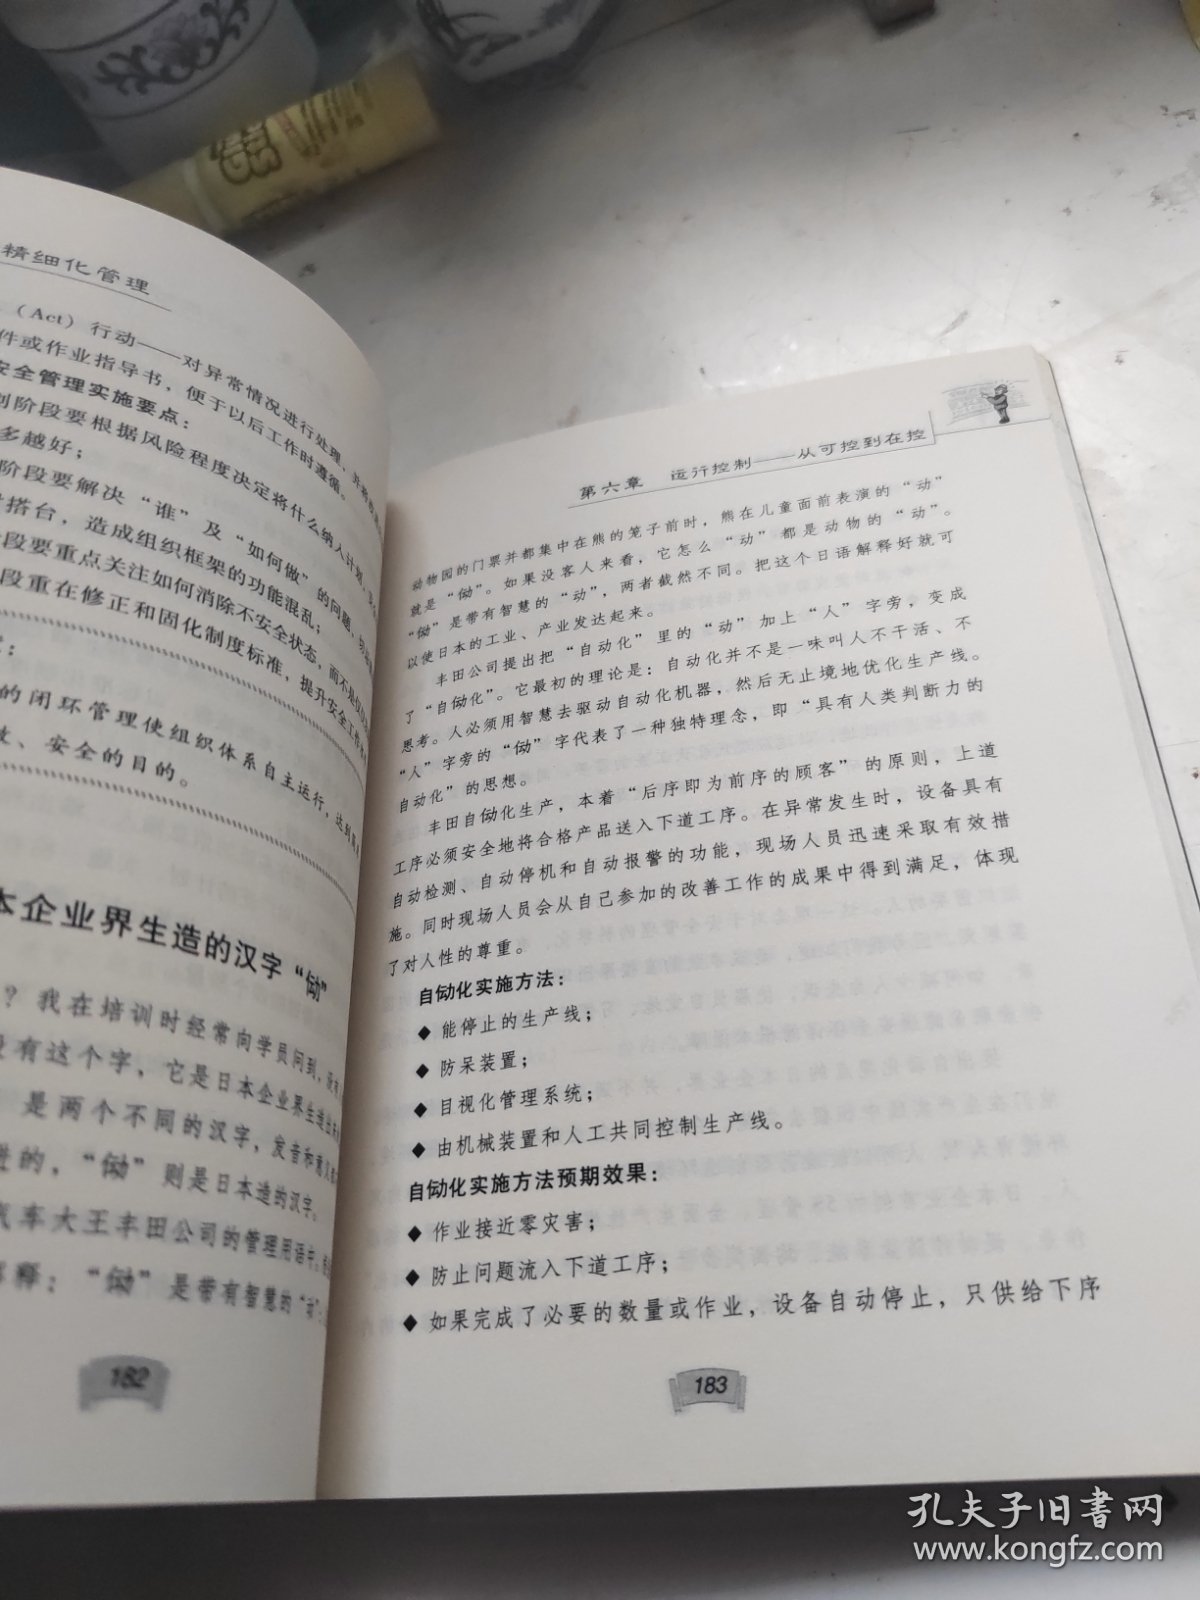 精细化管理
（Act）行动——对异常情况进行处理，并将
件或作业指导书，便于以后工作时遵循。
安全管理实施要点：
划阶段要根据风险程度决定将什么纳入计划，
多越好；
阶段要解决“谁”及“如何做”的问题，
搭台，造成组织框架的功能混乱；
段要重点关注如何消除不安全状态，而不是
段重在修正和固化制度标准，提升安全工作
：
的闭环管理使组织体系自主运行，达到
、安全的目的。
本企业界生造的汉字“働”
？我在培训时经常向学员问到，
没有这个字，它是日本企业界生造出来
是两个不同的汉字，发音和意义
进的，“働”则是日本造的汉字。
汽车大王丰田公司的管理用语中，
释：“働”是带有智慧的“动”
182
第六章 运行控制——从可控到在控
动物园的门票并都集中在熊的笼子前时，熊在儿童面前表演的“动”
就是“働”。如果没客人来看，它怎么“动”都是动物的“动”。
“働”是带有智慧的“动”，两者截然不同。把这个日语解释好就可
以使日本的工业、产业发达起来。
丰田公司提出把“自动化”里的“动”加上“人”字旁，变成
了“自働化”。它最初的理论是：自动化并不是一味叫人不干活、不
思考。人必须用智慧去驱动自动化机器，然后无止境地优化生产线。
“人”字旁的“働”字代表了一种独特理念，即“具有人类判断力的
自动化”的思想。
丰田自働化生产，本着“后序即为前序的顾客”的原则，上道
工序必须安全地将合格产品送入下道工序。在异常发生时，设备具有
自动检测、自动停机和自动报警的功能，现场人员迅速采取有效措
施。同时现场人员会从自己参加的改善工作的成果中得到满足，体现
了对人性的尊重。
自働化实施方法：
◆ 能停止的生产线；
◆ 防呆装置；
◆ 目视化管理系统；
◆ 由机械装置和人工共同控制生产线。
自働化实施方法预期效果：
◆ 作业接近零灾害；
◆ 防止问题流入下道工序；
◆ 如果完成了必要的数量或作业，设备自动停止，只供给下序
183
孔夫子旧书网
www.kongfz.com